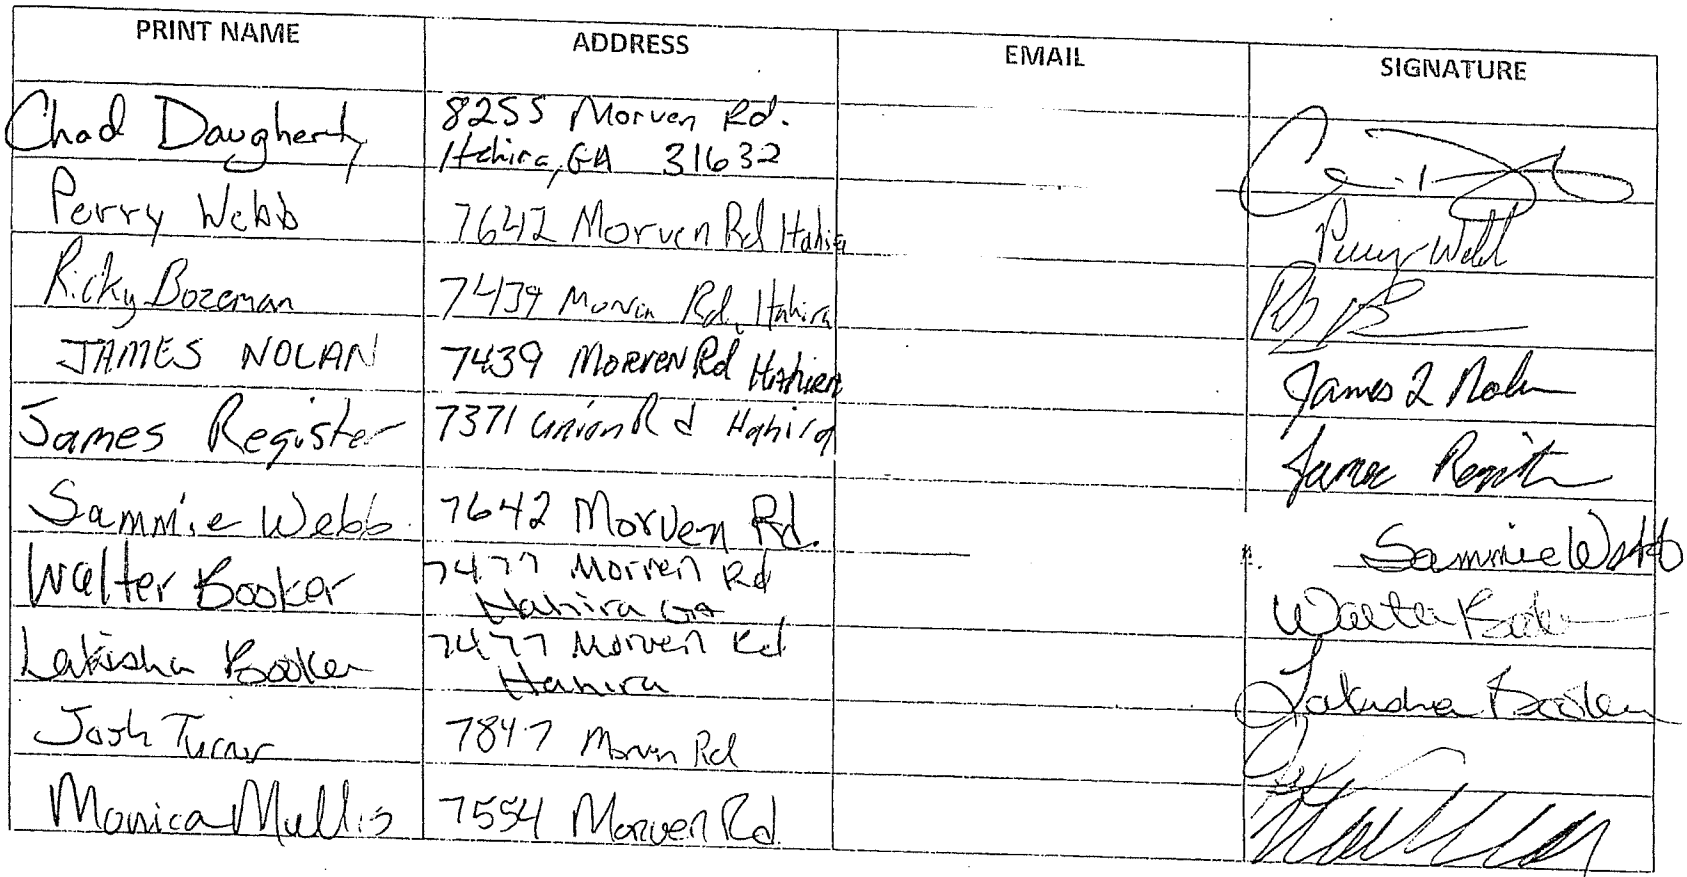 PRINT NAME ADDRESS EMAIL SIGNATURE
Chad Daugherty 8255 Morven Rd.
Hahira, GA 31632
Perry Webb 7642 Morven Rd Hahira Perry Webb
Ricky Bozeman 7439 Morven Rd, Hahira
JAMES NOLAN 7439 MORVEN Rd Hahira James L Nolan
James Register 7371 Union Rd Hahira James Register
Sammie Webb 7642 Morven Rd. Sammie Webb
Walter Booker 7477 Morven Rd Walter Booker
Hahira GA
Lakisha Booker 7477 Morven Rd Lakisha Booker
Hahira
Josh Turner 7847 Morven Rd
Monica Mullis 7554 Morven Rd.